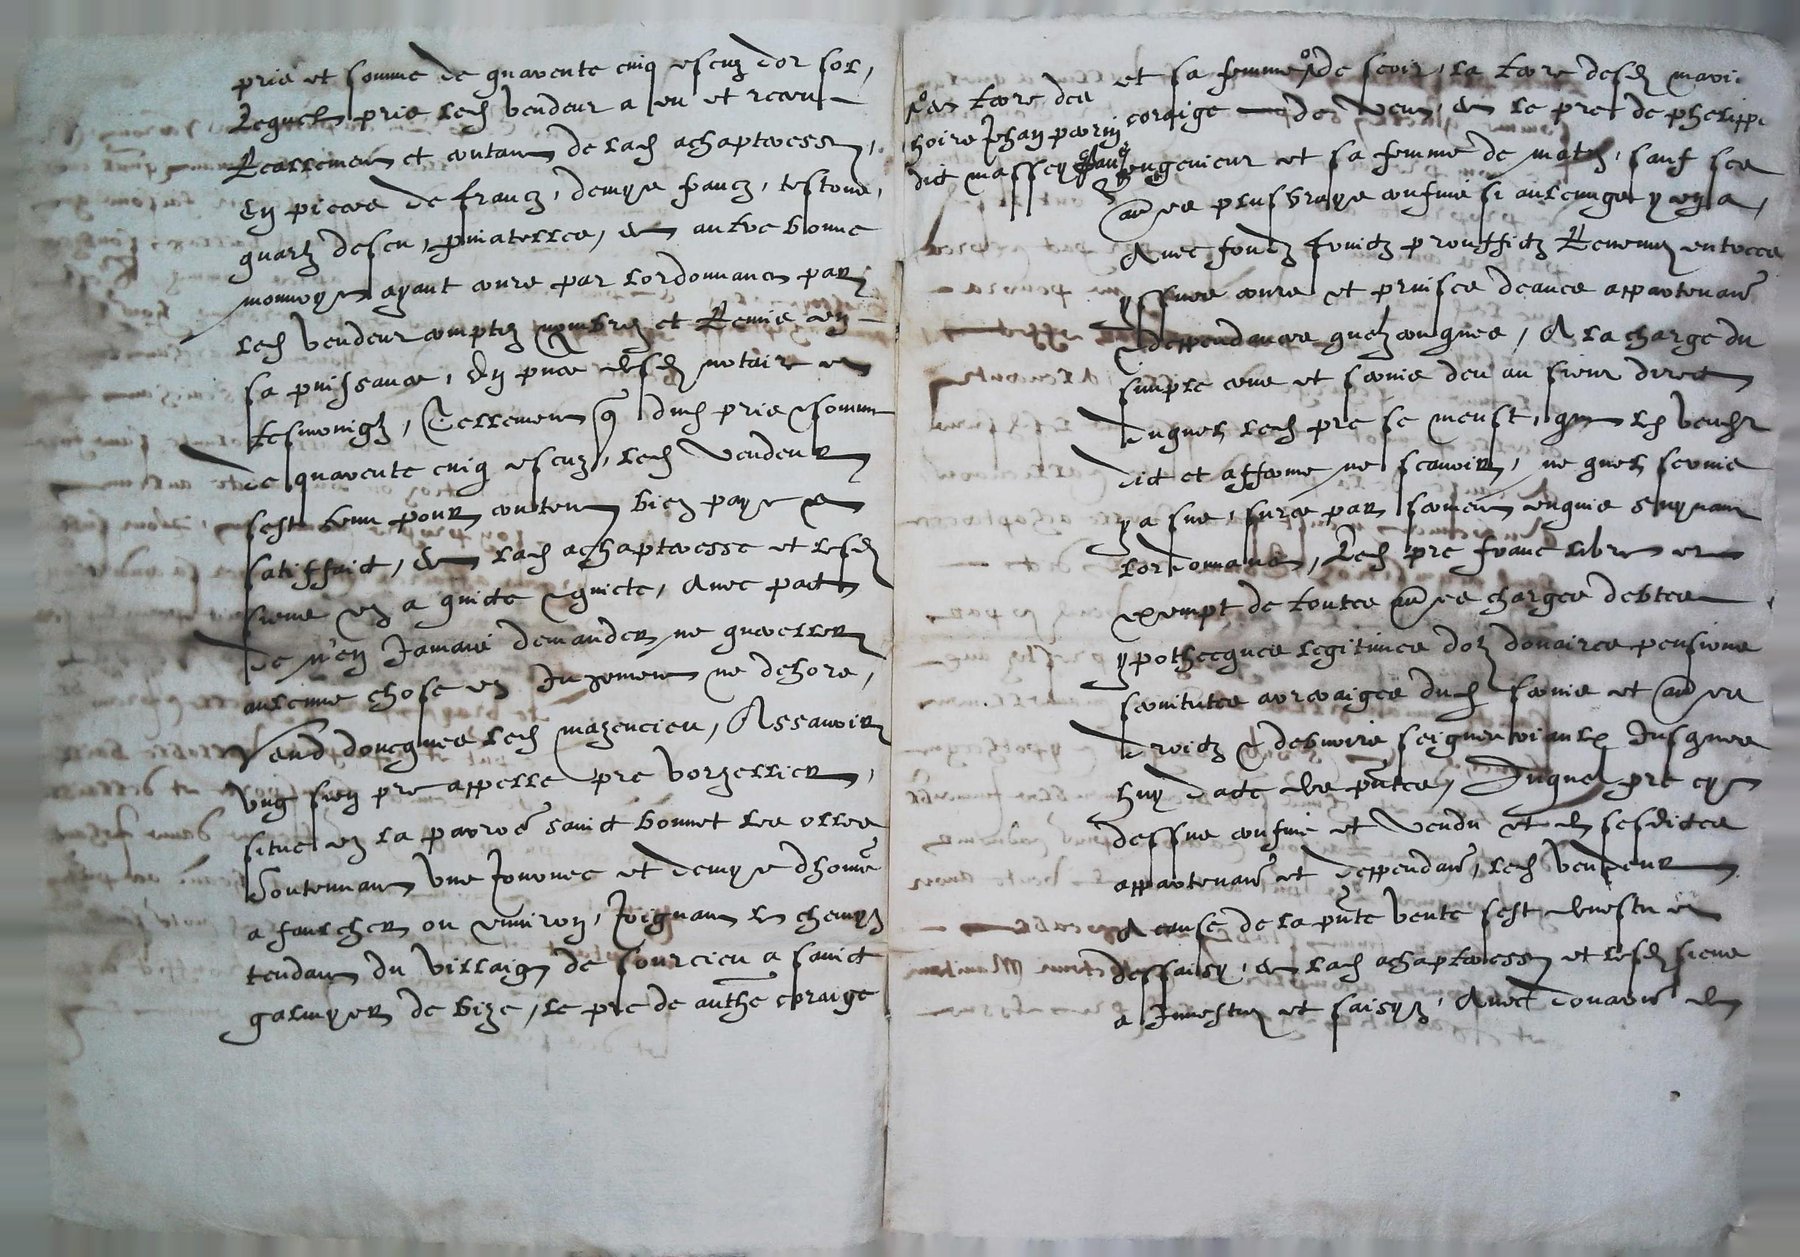 pris et somme de quarente cinq escuz dor sol,
Lequel pris led vendeur a eu et receu
Reallement et contant de lad achapteresse,
En pieces de francz, demys francz, testons,
quartz descu, pinatelles, et aultre bonne
monnoye ayant cours par lordonnance par
led vendeur comptez nombrez et Remis en
sa puissance, En pnce desd notaire et
tesmoingz, Tellement q dud pris et somme
de quarente cinq escuz, led vendeur
sest tenu pour content bien paye et
satisfaict, et lad achapteresse et lesd
siens en a quicte et quicte, Avec pact
de n'en Jamais demander ne quereller
aulcune chose en Jugement ne dehors,
Vend doncques led mazencieu, Assavoir
Ung sien pre appelle pre vorzellier,
situe en la parroe sainct bonnet les olles
Contenant une Journee et demye dhomme
a faulcher ou environ, Joignant le chemyn
tendant du villaige de sourcieu a sainct
galmyer de bize, le pre de anthe coraige
et sa femme de soir, la terre desd mari
coraige de vent, et le pre de phelippe
et la terre des
hoirs Jehan perrin
dit massey
engenieur et sa femme de matin, sauf ses
aues plus vrays confins si aulcungs y en a,
Avec fondz fruictz prouffictz Revenuz entrees
yssues cours et prinses deaues appartenan
et deppendances quelzconques, A la charge du
simple cens et servis deu au sieur direct
duquel led pre se meust, que led vendr
dict et afferme ne scavoir, ne quel servis
y a sus, surce par serment enquis suyvant
lordonnance, Led pre franc libre et
exempt de toutes aues charges debtes
ypothecques legitimes dotz douaires pensions
servitutes arreraiges dud servis et aues
droictz et debvoirs seigneuriaulx Jusques
huy dacte des pntes, Duquel pre cy
dessus confine et vendu et de sesdictes
appartenan et deppendan, led vendeur
A cause de la pnte vente sest devestu et
dessaisy, et lad achapteresse et lesd siens
a Investuz et saisyz, Avec donation de